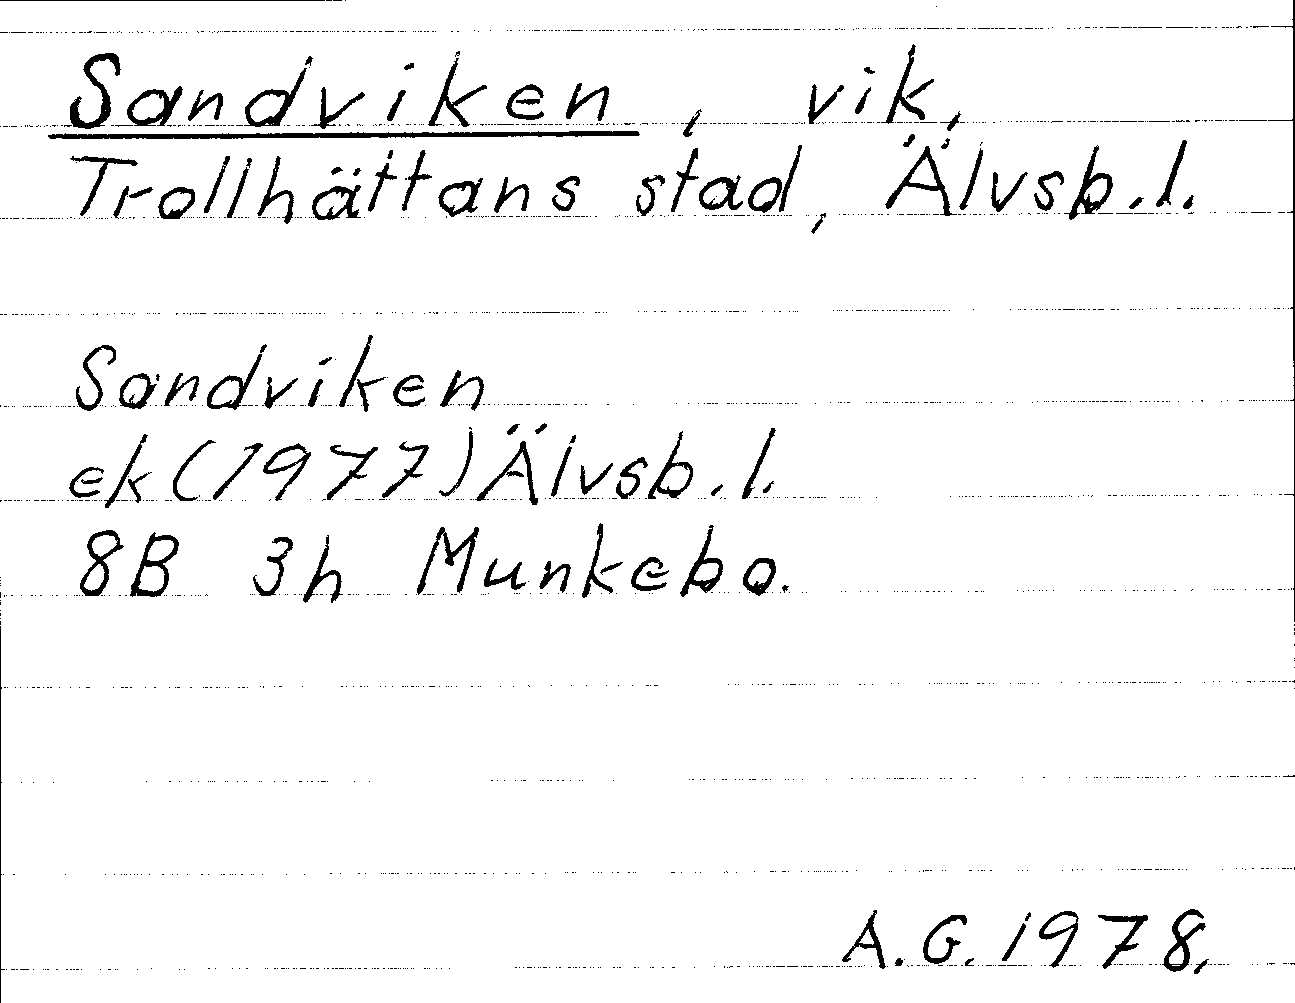 Sandviken, vik,
Trollhättans stad, Älvsb.l.
Sandviken
ek(1977)Älvsb.l.
8B 3h Munkebo.
A.G. 1978.